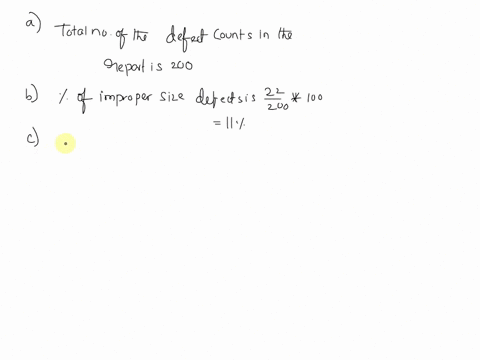 a) Total no. of the defect counts in the
report is 200
b) % of improper size defects is 22/200 * 100
= 11%
c)